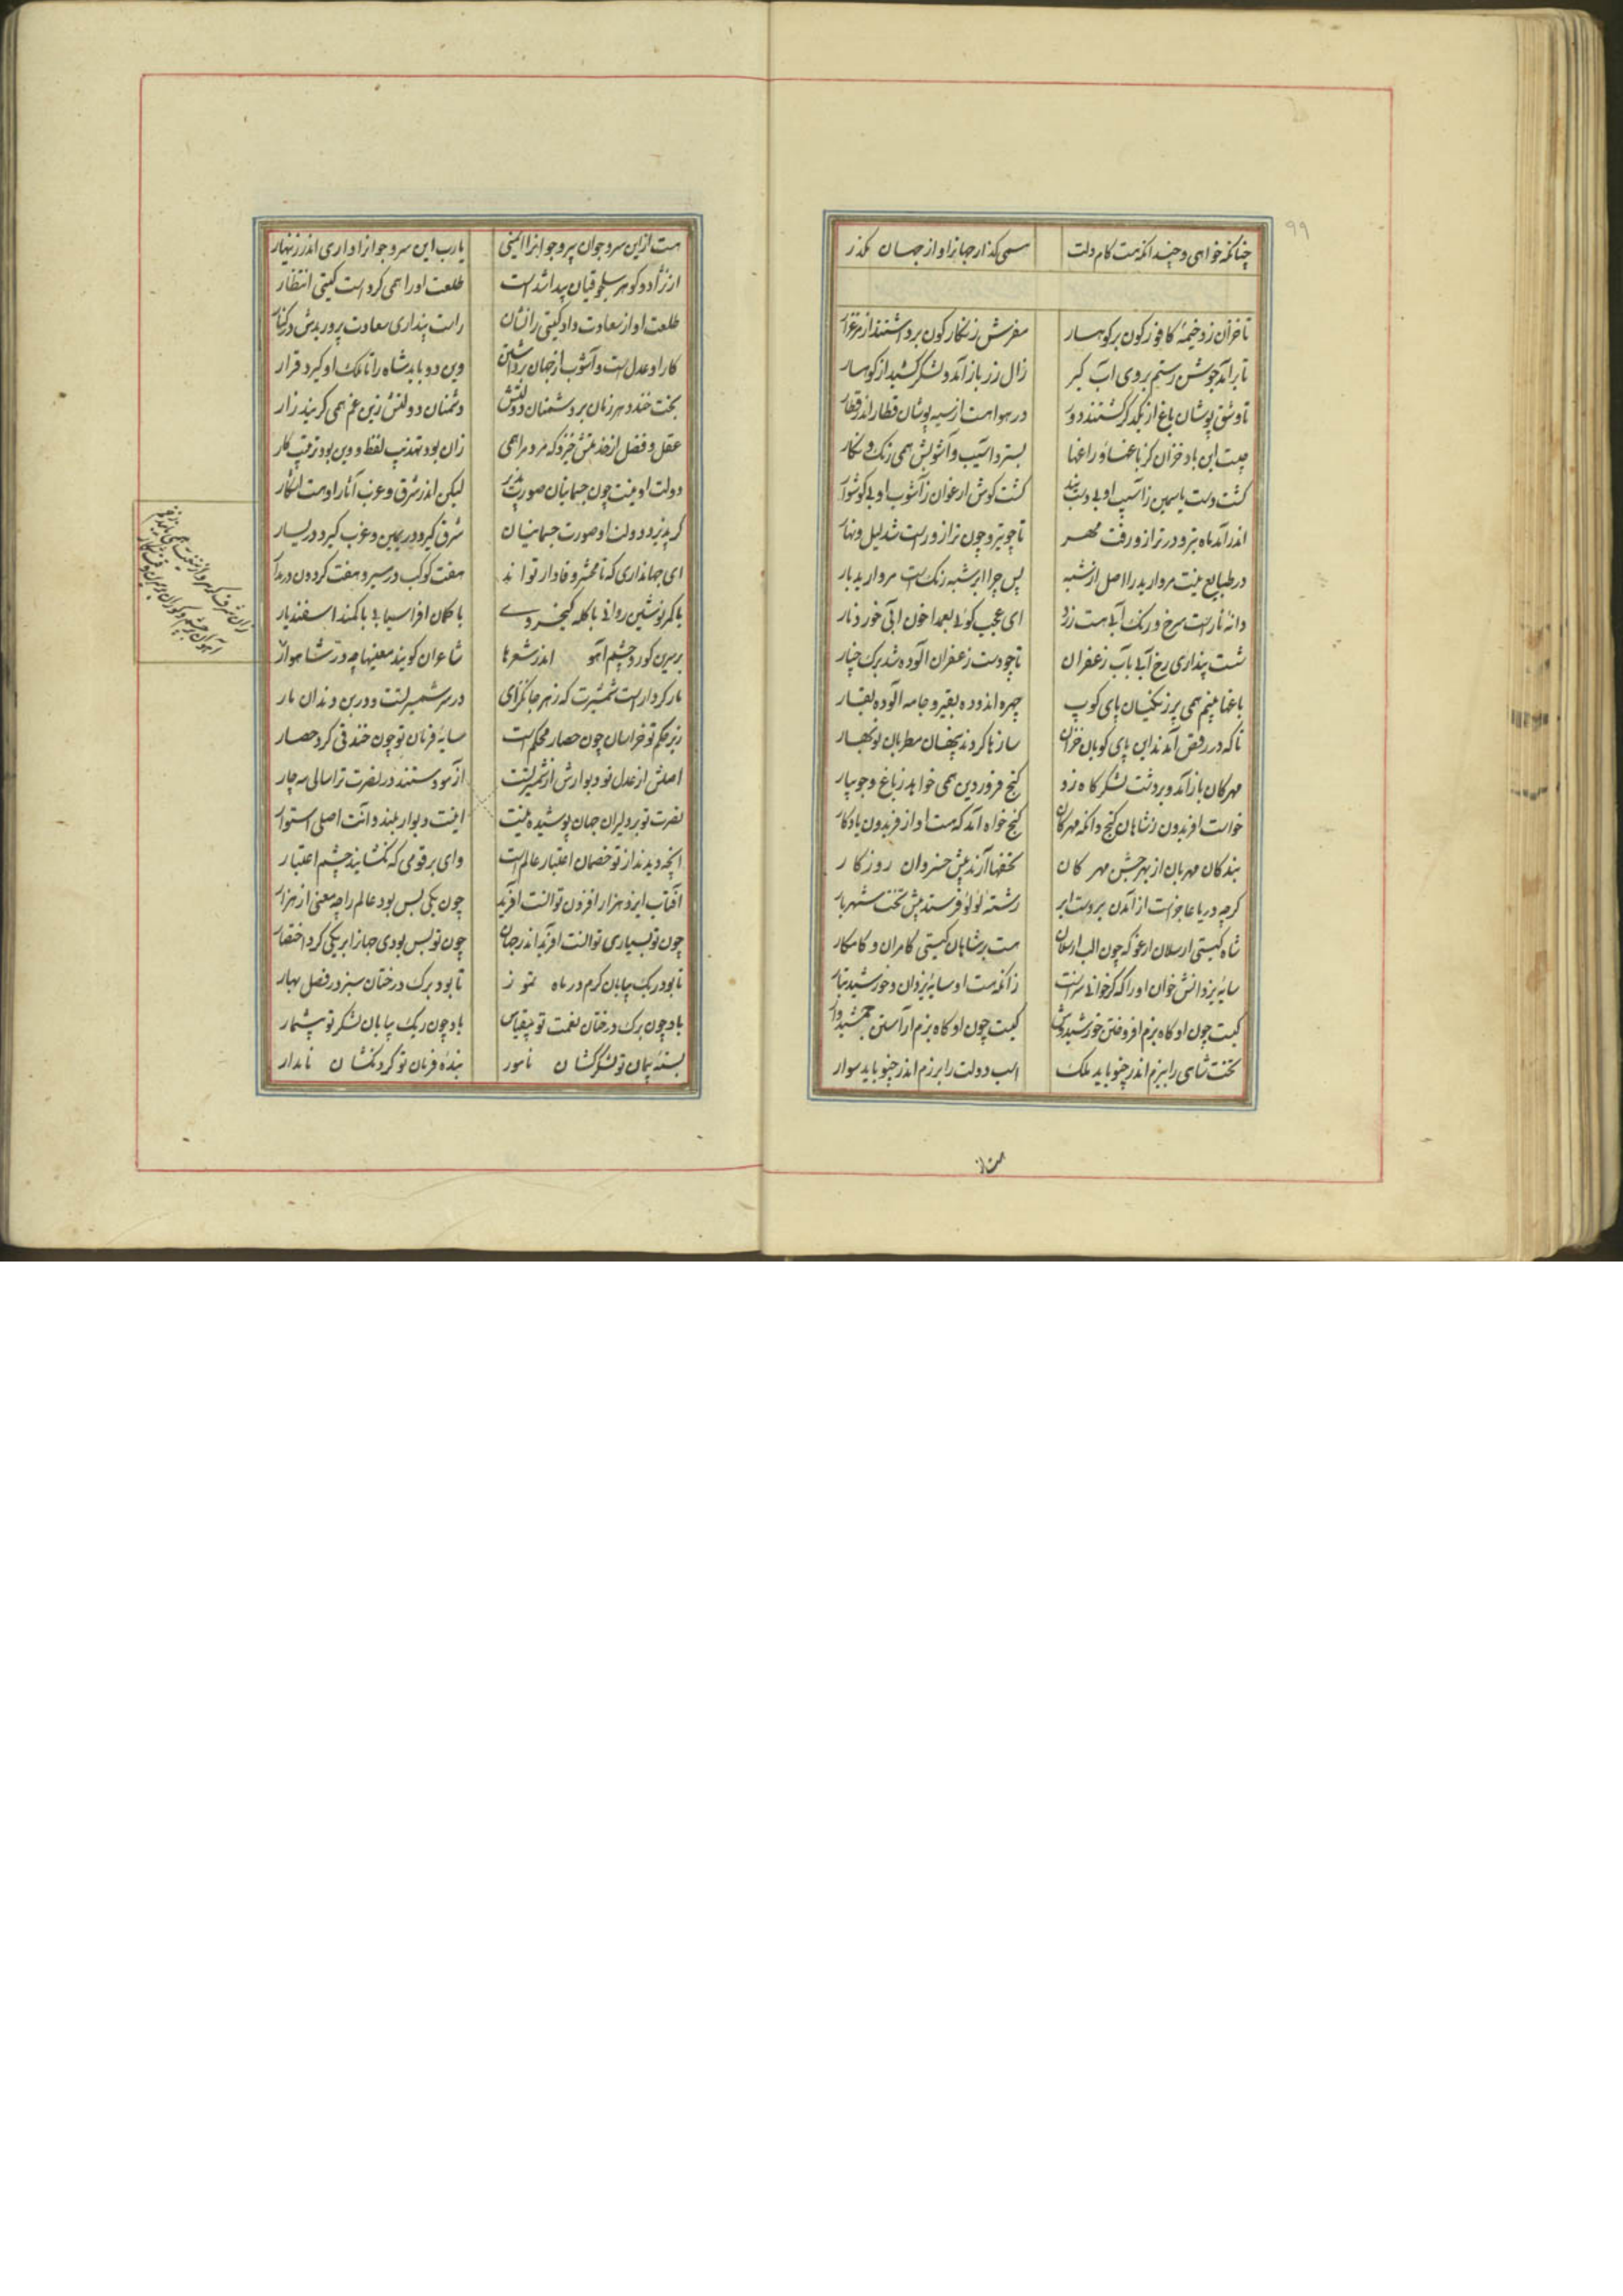 ۹۹
چنانکه خواهی و چندانکه هست کام دلت همی گذار جهانرا و از جهان مگذر
تا خزان زد خیمهٔ کافورگون بر کوهسار مفرش زنگارگون برداشتند از مرغزار
تا برآمد جوشن رستم بروی آب گیر زال زر باز آمد و لشکر کشید از کوهسار
تا وشق پوشان باغ از یکدگر گشتند دور در هوا هست از سیه پوشان قطار اندر قطار
چیست این باد خزان کز باغها و راغها بسترد آسیب و آشوبش همی رنگ و نگار
گشت دست یاسمین ز آسیب او بی دست بند گشت گوش ارغوان ز آشوب او بی گوشوار
اندر آمد ماه تیر و در ترازو رفت مهر تا چو تیر و چون ترازو راست شد لیل و نهار
در طبایع نیست مروارید را اصل از شبه پس چرا ابر شبه رنگ است مروارید بار
دانهٔ نار است سرخ و رنگ آبی هست زرد ای عجب گوئی بعمدا خون آبی خورد نار
شست پنداری رخ آبی بآب زعفران تا چو دست زعفران آلوده شد برگ چنار
باغها بینم همی پر زنگیان پای کوب چهره اندوده بقیر و جامه آلوده بقار
تا که در رقص آمدند این پای کوبان خزان سازها کردند پنهان مطربان نوبهار
مهرگان باز آمد و بر دشت لشکرگاه زد گنج فروردین همی خواهد ز باغ و جویبار
خواست افریدون ز شاهان گنج وانگه مهرگان گنج خواه آمد که هست او از فریدون یادگار
بندگان مهربان از بهر جشن مهرگان تحفها آرند پیش خسروان روزگار
گرچه دریا عاجز است از آمدن بر دست ابر رشتهٔ لؤلؤ فرستد پیش تخت شهریار
شاه گیتی ارسلان ارغو که چون الب ارسلان هست بر شاهان گیتی کامران و کامکار
سایهٔ یزدانش خوان او را که گر خوانی سزاست زانکه هست او سایهٔ یزدان و خورشید تبار
کیست چون او گاه بزم افروختن خورشیدوش کیست چون او گاه بزم آراستن جمشیدوار
تخت شاهی را ببزم اندر چنو باید ملک اسب دولت را برزم اندر چنو باید سوار
هست از
هست ازین سرو جوان پیر و جوانرا ایمنی یارب این سرو جوانرا او داری اندر زینهار
از نژاد و گوهر سلجوقیان پیدا شد است طلعت او را همی کرد است گیتی انتظار
طلعت او از سعادت داد گیتی را نشان راست پنداری سعادت پروریدش در کنار
کار او عدل است و آشوب از جهان برداشتن وین دو باید شاه را تا ملک او گیرد قرار
بخت خندد هر زمان بر دشمنان دولتش دشمنان دولتش زین غم همی گریند زار
عقل و فضل از خدمتش خیزد که مر مرد را همی زان بود تهذیب لفظ و وین بود ترتیب کار
دولت او نیست چون جسمانیان صورت پذیر لیکن اندر شرق و غرب آثار او هست آشکار
گر پذیرد دولت او صورت جسمانیان شرق گیرد در یمین و غرب گیرد در یسار
ای جهانداری که تا محشر وفادار تواند هفت کوکب در مسیر و هفت گردون در مدار
با کمر نوشین روانی با کله کیخسروی با کمان افراسیابی با کمند اسفندیار
بر سرین گور و چشم آهو اندر شعرها شاعران گویند معنیها چو در شاهوار
مار کردار است شمشیرت که زهر جانگزای در سر شمشیر تست و در بن دندان مار
زیر حکم تو خراسان چون حصار محکم است سایهٔ فرمان تو چون خندقی گرد حصار
اصلش از عدل تو و دیوارش از شمشیر تست اینت دیوار بلند و آنت اصلی استوار
نصرت تو بر دلیران جهان پوشیده نیست آزمودستند در نصرت ترا سالی سه چار
آنچه دیدند از تو خصمان اعتبار عالم است وای بر قومی که نگشایند چشم اعتبار
آفتاب ایزد هزار افزون توانست آفرید چون یکی بس بود عالم را چه معنی از هزار
چون تو بسیاری توانست آفرید اندر جهان چون تو بس بودی جهانرا بر یکی کرد اختصار
تا بود ریگ بیابان گرم در ماه تموز تا بود برگ درختان سبز در فصل بهار
باد چون برگ درختان نعمت تو بیقیاس باد چون ریگ بیابان لشکر تو بیشمار
بستهٔ پیمان تو لشگرکشان نامور بندهٔ فرمان تو گردنکشان نامدار